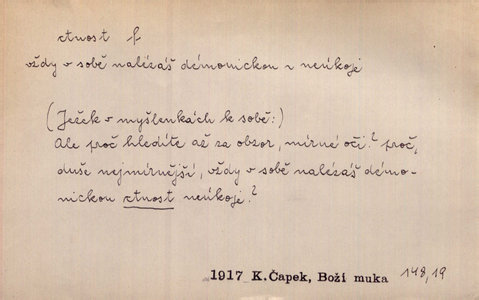 ctnost f
vždy v sobě nalézáš démonickou c neúkoje
(Ježek v myšlenkách k sobě:)
Ale proč hledíte až za obzor, mírné oči? proč,
duše nejmírnější, vždy v sobě nalézáš démo-
nickou ctnost neúkoje?
1917 K.Čapek, Boží muka 148,19